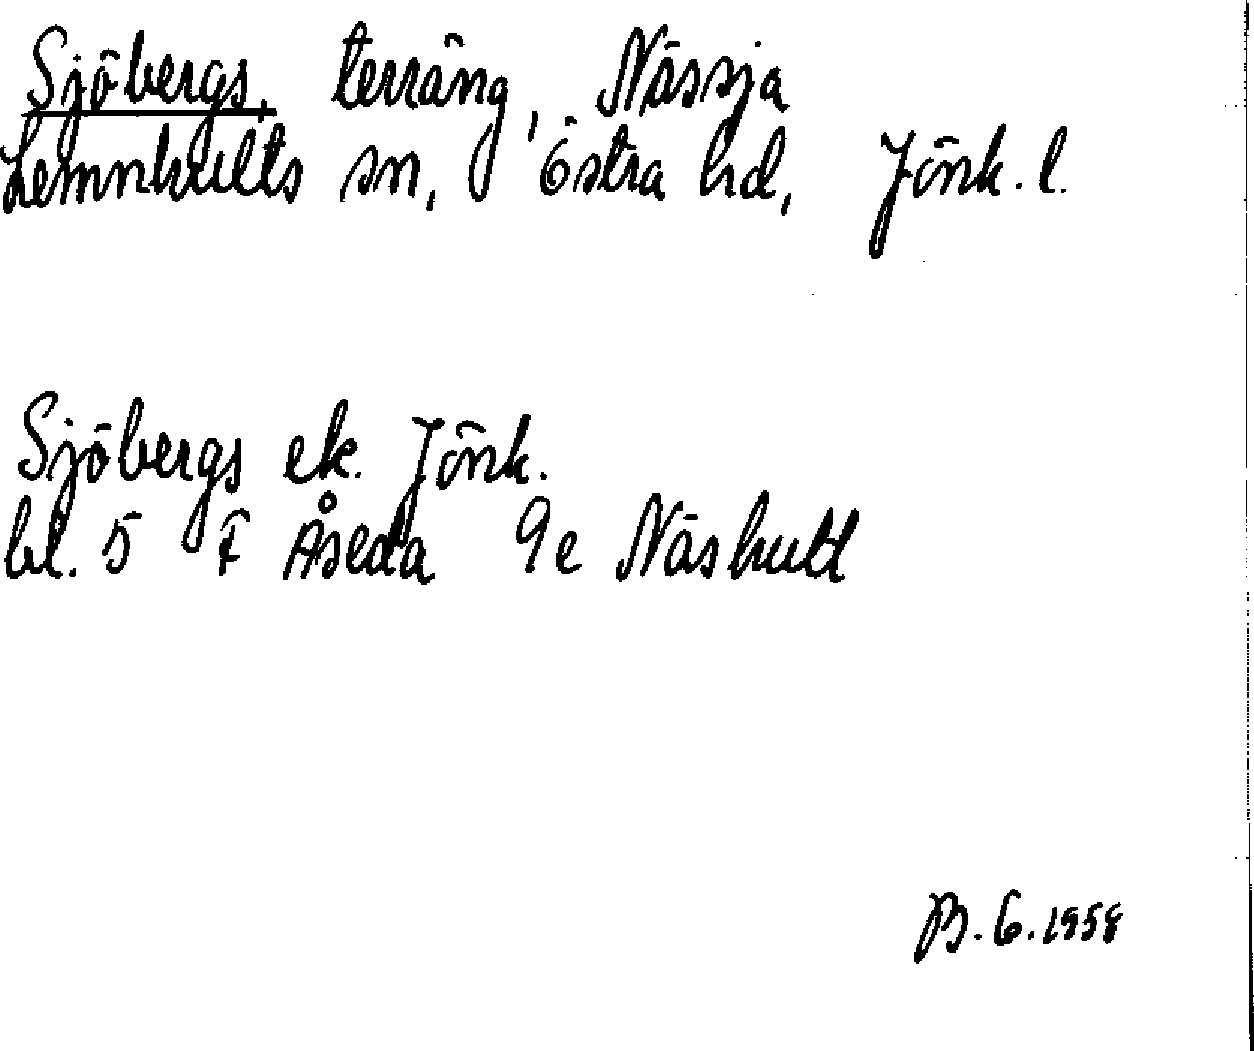 Sjöbergs, terräng, Nässja
Lemnhults sn, Östra hd, Jönk. l.
Sjöbergs ek. Jönk.
bl. 5 f Åseda 9e Näshult
B. G. 1958